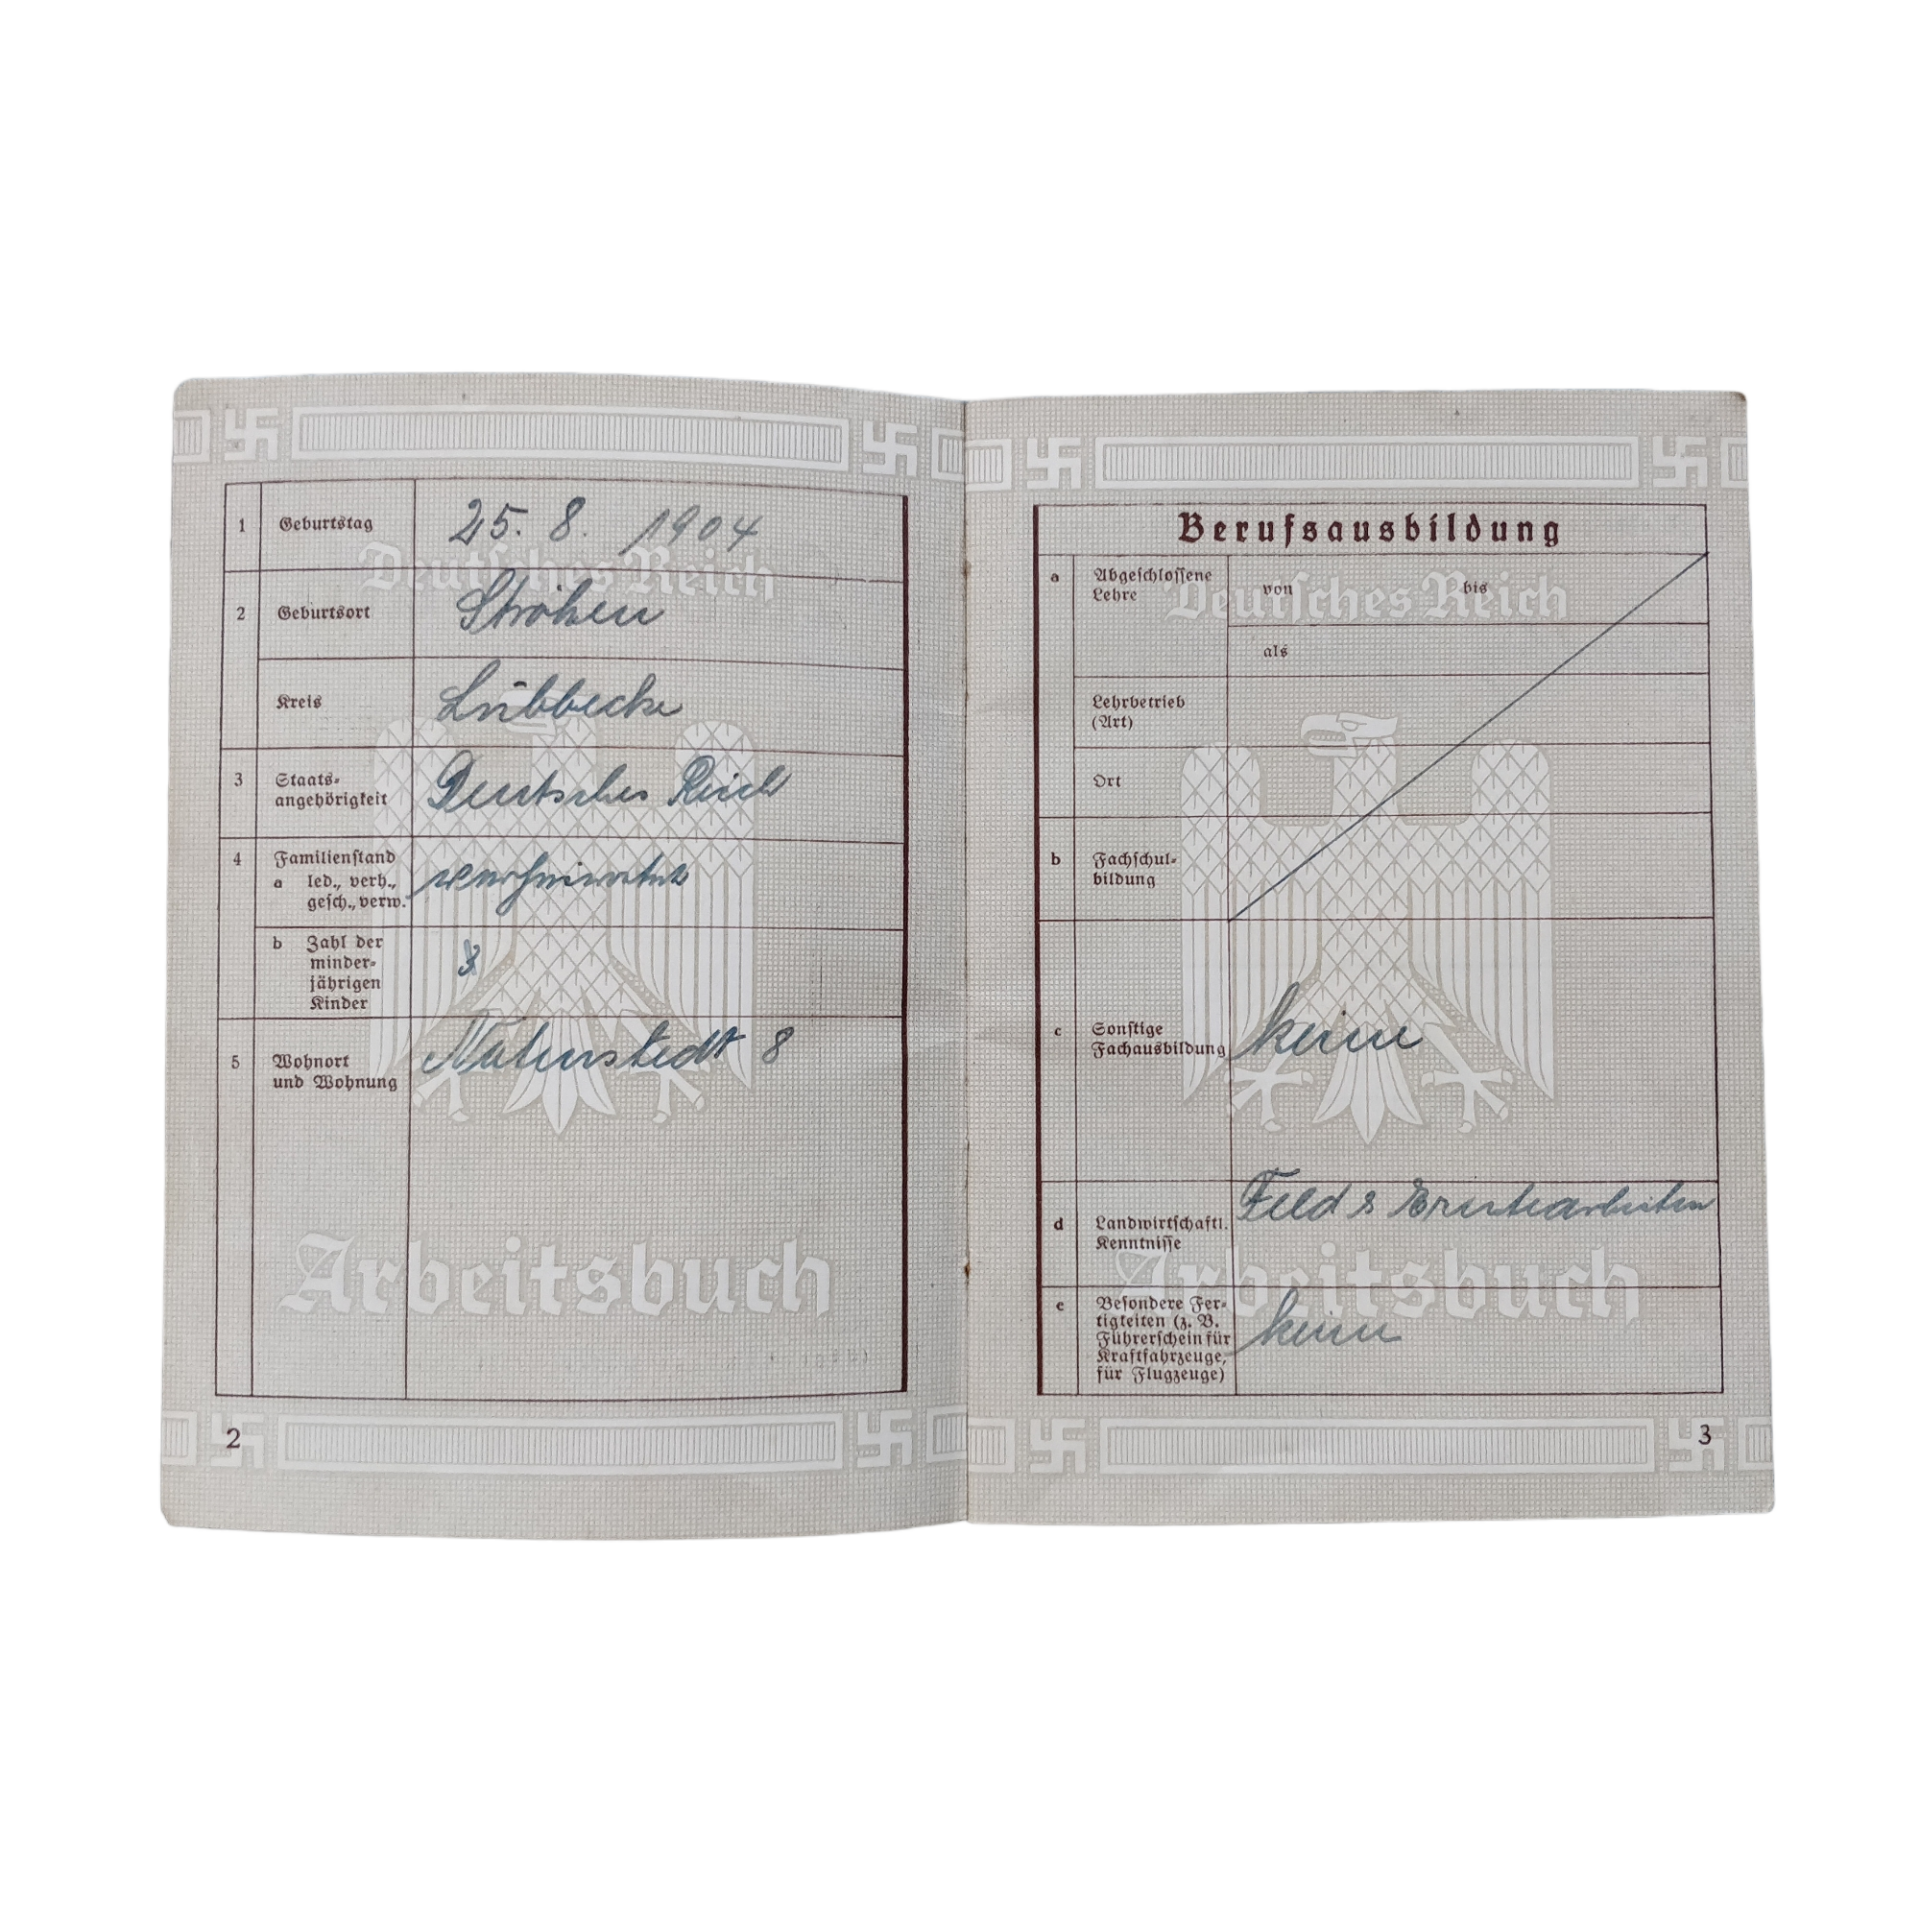 Deutsches Reich
1 Geburtstag 25. 8. 1904
2 Geburtsort Ströhen
Kreis Lübbecke
3 Staats-
angehörigkeit Deutsches Reich
4 Familienstand
a led., verh.,
gesch., verw. verheiratet
b Zahl der
minder-
jährigen
Kinder
5 Wohnort
und Wohnung 8
Arbeitsbuch
2
Berufsausbildung
Deutsches Reich
a Abgeschlossene
Lehre
von bis
als
Lehrbetrieb
(Art)
Ort
b Fachschul-
bildung
c Sonstige
Fachausbildung keine
d Landwirtschaftl.
Kenntnisse
Feld & Erntearbeiten
Arbeitsbuch
e Besondere Fer-
tigkeiten (z. B.
Führerschein für
Kraftfahrzeuge,
für Flugzeuge)
keine
3